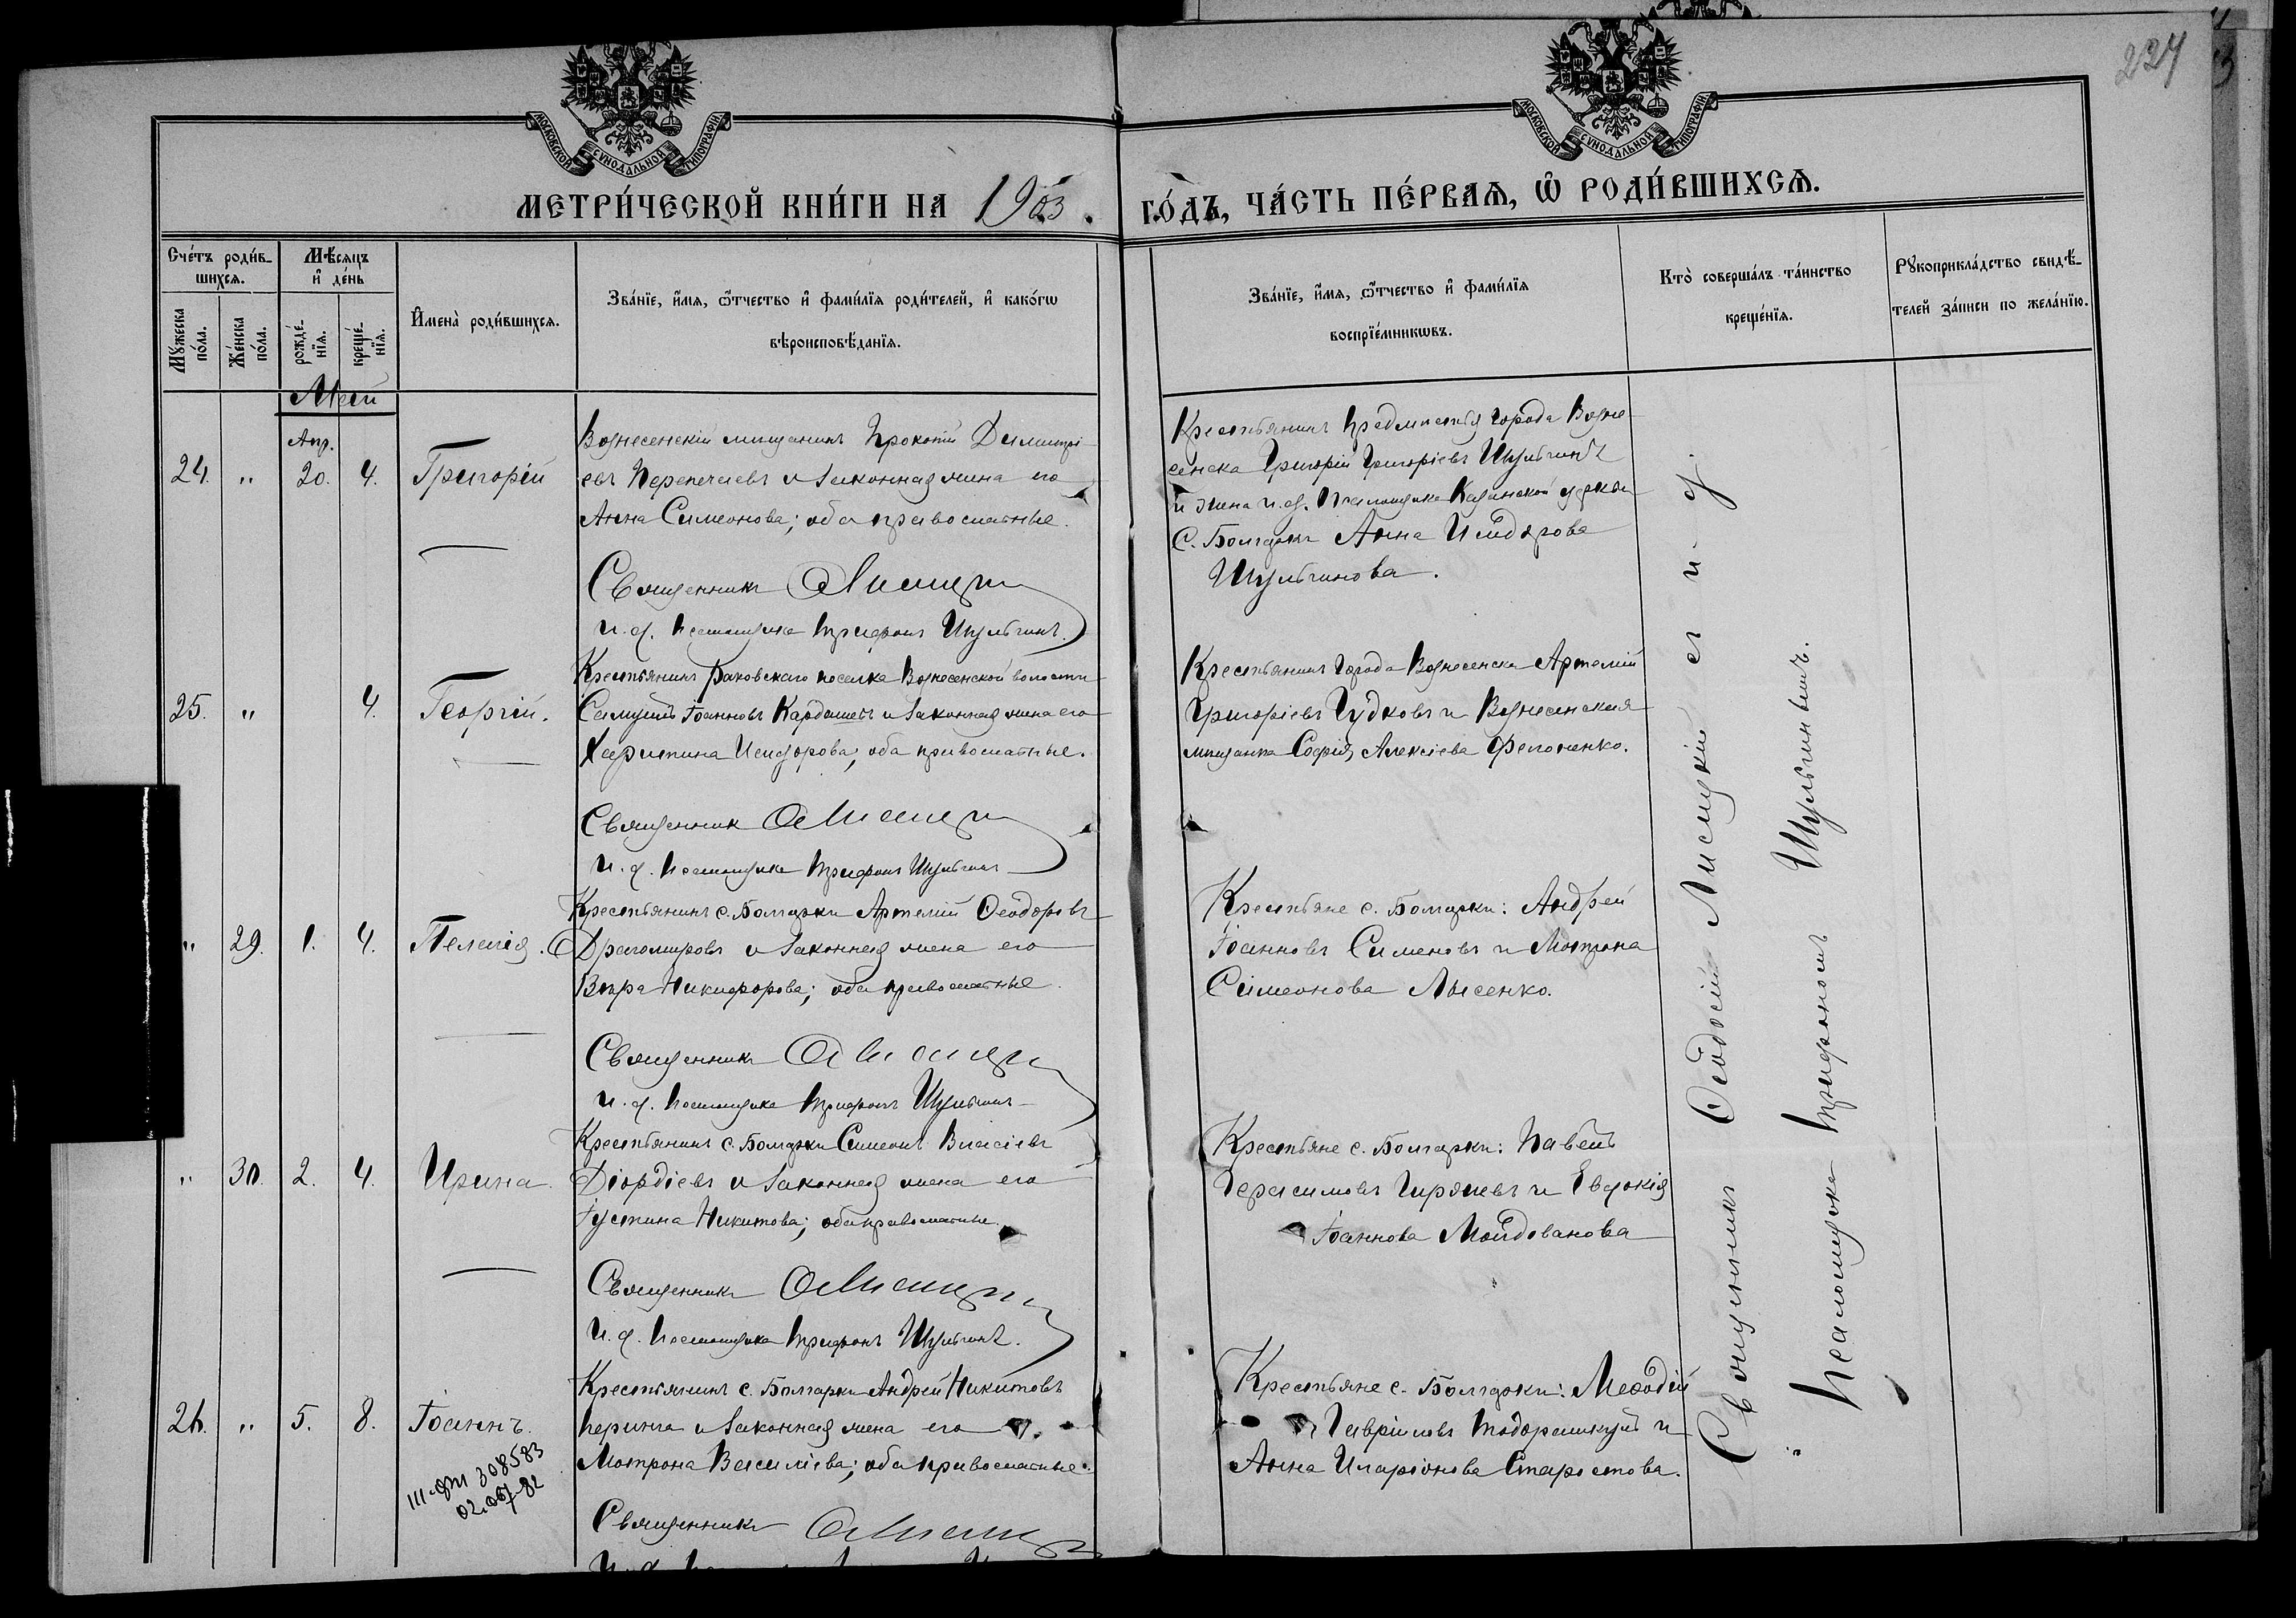 МОСКОВСКОЙ СѴНОДАЛЬНОЙ ТИПОГРАФІИ
МОСКОВСКОЙ СѴНОДАЛЬНОЙ ТИПОГРАФІИ
227
МЕТРИ́ЧЕСКОЙ КНИ́ГИ НА 1903. ГО́ДЪ, ЧА́СТЬ ПЕ́РВАѦ, Ѡ҆ РОДИ́ВШИХСѦ.
Сче́тъ роди́в-
шихсѧ.
Мꙋ́жеска по́ла.
Же́нска по́ла.
Мѣ́сѧцъ
и҆ де́нь
рожде́-
нїѧ.
креще́-
нїѧ.
И҆мена̀ роди́вшихсѧ.
Зва́нїе, и҆́мѧ, ѻ҆́тчество и҆ фами́лїѧ роди́телей, и҆ како́гѡ
вѣроисповѣ́данїѧ.
Зва́нїе, и҆́мѧ, ѻ҆́тчество и҆ фами́лїѧ
воспрїе́мникѡвъ.
Кто̀ соверша́лъ та́инство
креще́нїѧ.
Рꙋкоприкла́дство свидѣ́-
телей за́писи по жела́нїю.
Май
24. " Апр. 20. 4. Григорій
Вознесенскій мищанинъ Прокопій Димитрі-
евъ Перепечаевъ и законная жена его
Анна Симеонова; оба православные.
Священникъ
и. д. Псаломщика Трифонъ Шульгинъ.
Крестьянинъ предмѣстья города Возне-
сенска Григорій Григоріевъ Шульгинъ
и жена и. д. Псаломщика Казанской церкви
с. Болгарки Анна Исидорова
Шульгинова.
25. " 4. Георгій.
Крестьянинъ Раковскаго поселка Вознесенской волости
Самуилъ Іоанновъ Кардашевъ и законная жена его
Харитина Исидорова; оба православные.
Священникъ
и. д. Псаломщика Трифонъ Шульгинъ
Крестьянинъ города Вознесенска Артемій
Григоріевъ Гудковъ и Вознесенская
мищанка Софія Алексіева
" 29. 1. 4. Пелагія.
Крестьянинъ с. Болгарки Артемій Ѳеодоровъ
Драгомировъ и законная жена его
Вѣра Никифорова; оба православные.
Священникъ
и. д. Псаломщика Трифонъ Шульгинъ
Крестьяне с. Болгарки: Андрей
Іоанновъ Сименовъ и Мотрона
Симеонова Лысенко.
" 30. 2. 4. Ирина.
Крестьянинъ с. Болгарки Симеонъ Власіевъ
Діордіевъ и законная жена его
Іустина Никитова; оба православные.
Священникъ
и. д. Псаломщика Трифонъ Шульгинъ.
Крестьяне с. Болгарки: Павелъ
Герасимовъ и Евдокія
Іоаннова Молдованова
26. " 5. 8. Іоаннъ.
III-ФП 308583
Крестьянинъ с. Болгарки Андрей Никитовъ
Перинга и законная жена его
Мотрона Василіева; оба православные.
Священникъ
Крестьяне с. Болгарки: Меѳодій
Гавріиловъ Тодорашкулъ и
Анна Иларіонова Старостова.
Священникъ Ѳеодосій Лисицкій съ и. д.
" Псаломщика Трифономъ Шульгинымъ.